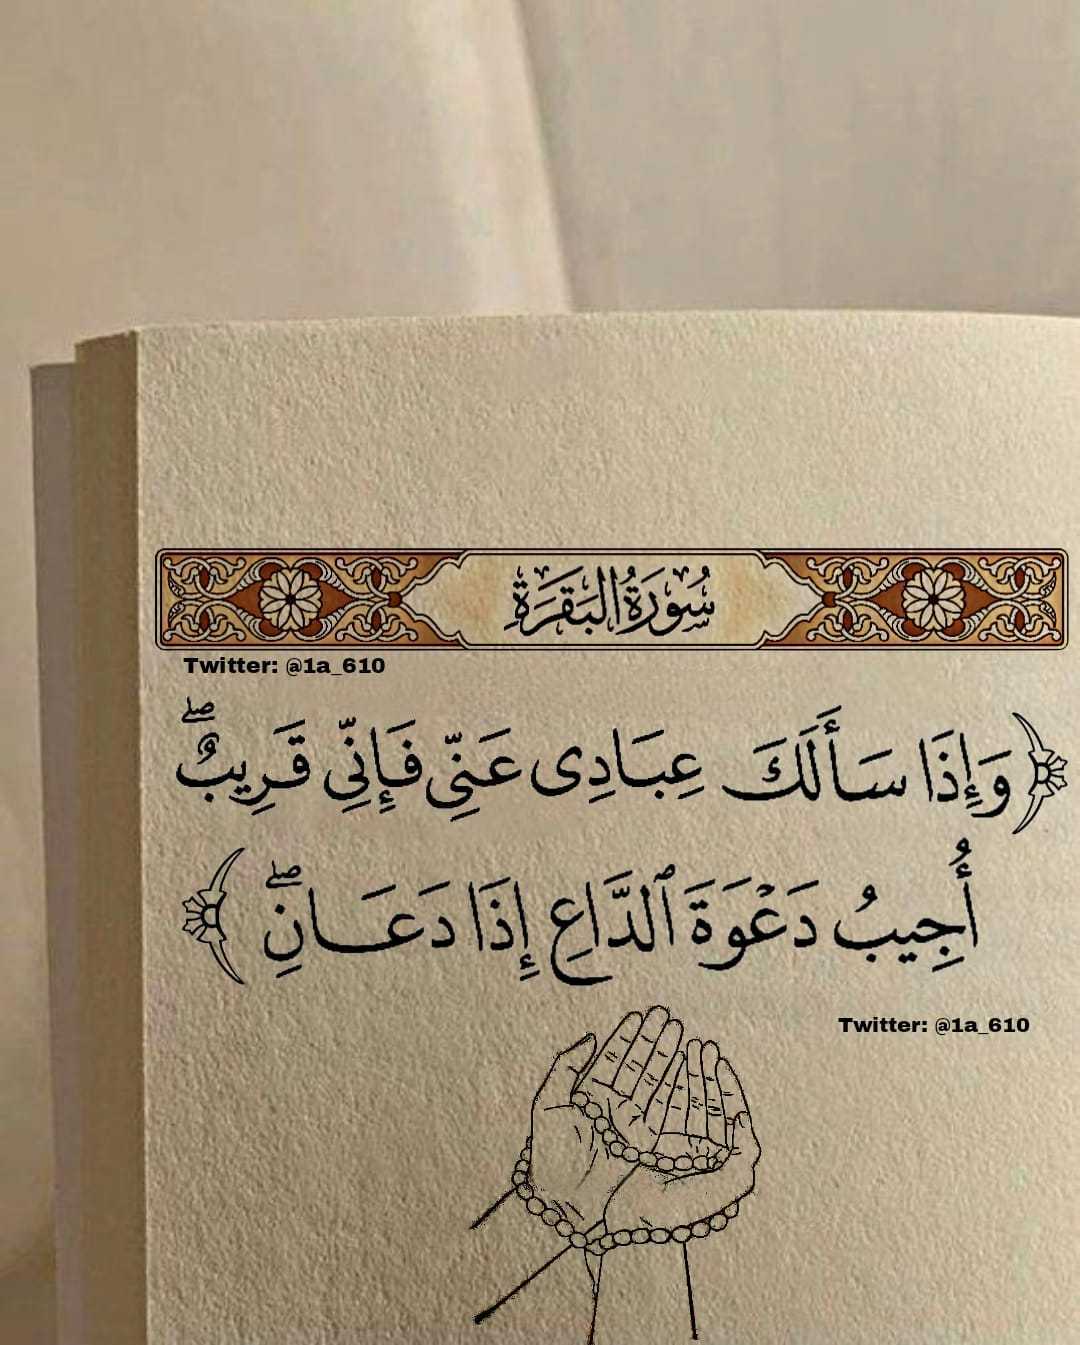 سُورَةُ البَقَرَةِ
Twitter: @1a_610
﴿وَإِذَا سَأَلَكَ عِبَادِى عَنِّى فَإِنِّى قَرِيبٌ ۖ
أُجِيبُ دَعْوَةَ ٱلدَّاعِ إِذَا دَعَانِ ۖ﴾
Twitter: @1a_610